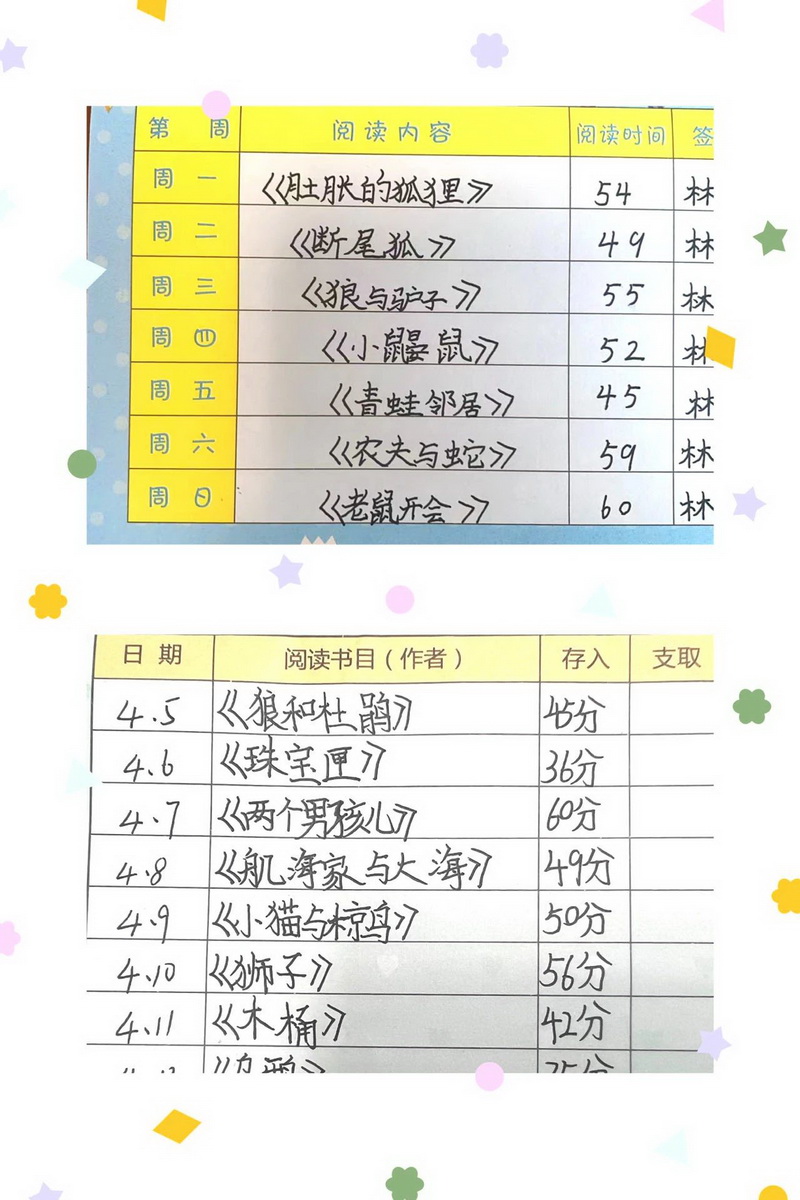 第 周 阅读内容 阅读时间 签
周一 《肚胀的狐狸》 54 林
周二 《断尾狐》 49 林
周三 《狼与驴子》 55 林
周四 《小鼹鼠》 52 林
周五 《青蛙邻居》 45 林
周六 《农夫与蛇》 59 林
周日 《老鼠开会》 60 林
日期 阅读书目(作者) 存入 支取
4.5 《狼和杜鹃》 45分
4.6 《珠宝匣》 36分
4.7 《两个男孩儿》 60分
4.8 《航海家与大海》 49分
4.9 《小猫与椋鸟》 50分
4.10 《狮子》 56分
4.11 《木桶》 42分